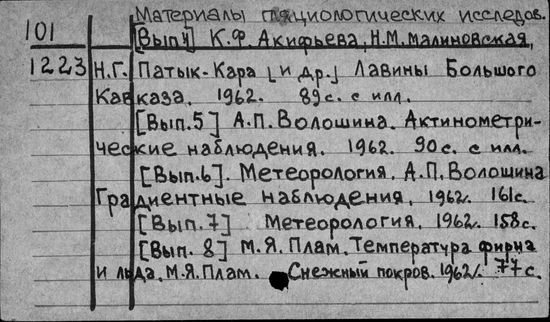 Материалы гляциологических исследов.
101 [Вып 4] К.Ф. Акифьева, Н.М. Малиновская,
1223 Н.Г. Патык-Кара [и др.] Лавины Большого
Кавказа. 1962. 89с. с илл.
[Вып.5] А.П. Волошина. Актинометри-
ческие наблюдения. 1962. 90с. с илл.
[Вып.6]. Метеорология. А.П. Волошина
Градиентные наблюдения. 1962. 161с.
[Вып.7] Метеорология. 1962. 158с.
[Вып. 8] М.Я. Плам. Температура фирна
и льда. М.Я. Плам. Снежный покров. 1962. 77с.